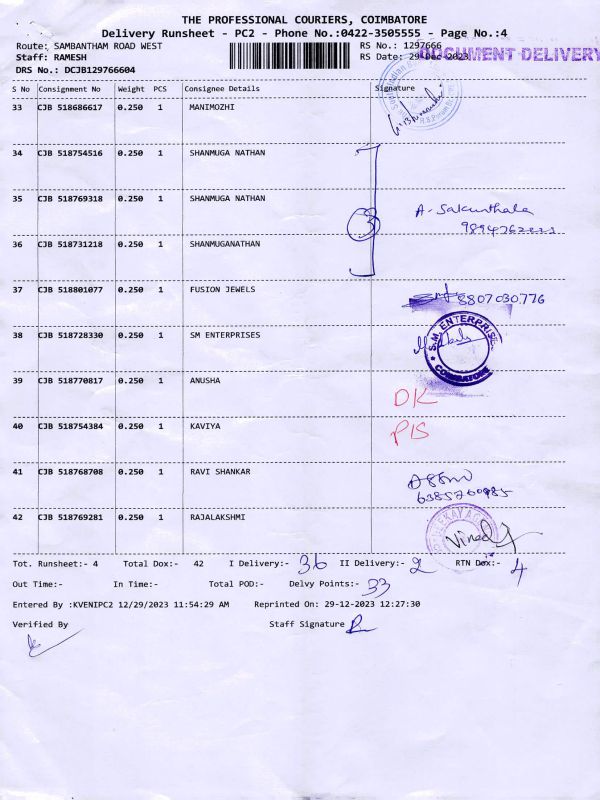 THE PROFESSIONAL COURIERS, COIMBATORE
Delivery Runsheet - PC2 - Phone No.:0422-3505555 - Page No.:4
Route: SAMBANTHAM ROAD WEST RS No.: 1297666
DOCUMENT DELIVERY
Staff: RAMESH RS Date: 29-Dec-2023
DRS No.: DCJB129766604
S No Consignment No Weight PCS Consignee Details Signature
33 CJB 518686617 0.250 1 MANIMOZHI
34 CJB 518754516 0.250 1 SHANMUGA NATHAN
35 CJB 518769318 0.250 1 SHANMUGA NATHAN
3 A. Sakunthala
36 CJB 518731218 0.250 1 SHANMUGANATHAN
37 CJB 518801077 0.250 1 FUSION JEWELS 8807030776
38 CJB 518728330 0.250 1 SM ENTERPRISES
S.M. ENTERPRISES
COIMBATORE
39 CJB 518770817 0.250 1 ANUSHA
DK
40 CJB 518754384 0.250 1 KAVIYA
P/S
41 CJB 518768708 0.250 1 RAVI SHANKAR
42 CJB 518769281 0.250 1 RAJALAKSHMI
Tot. Runsheet:- 4 Total Dox:- 42 I Delivery:- 36 II Delivery:- 2 RTN Dox:- 4
Out Time:- In Time:- Total POD:- Delvy Points:- 33
Entered By :KVENIPC2 12/29/2023 11:54:29 AM Reprinted On: 29-12-2023 12:27:30
Verified By Staff Signature